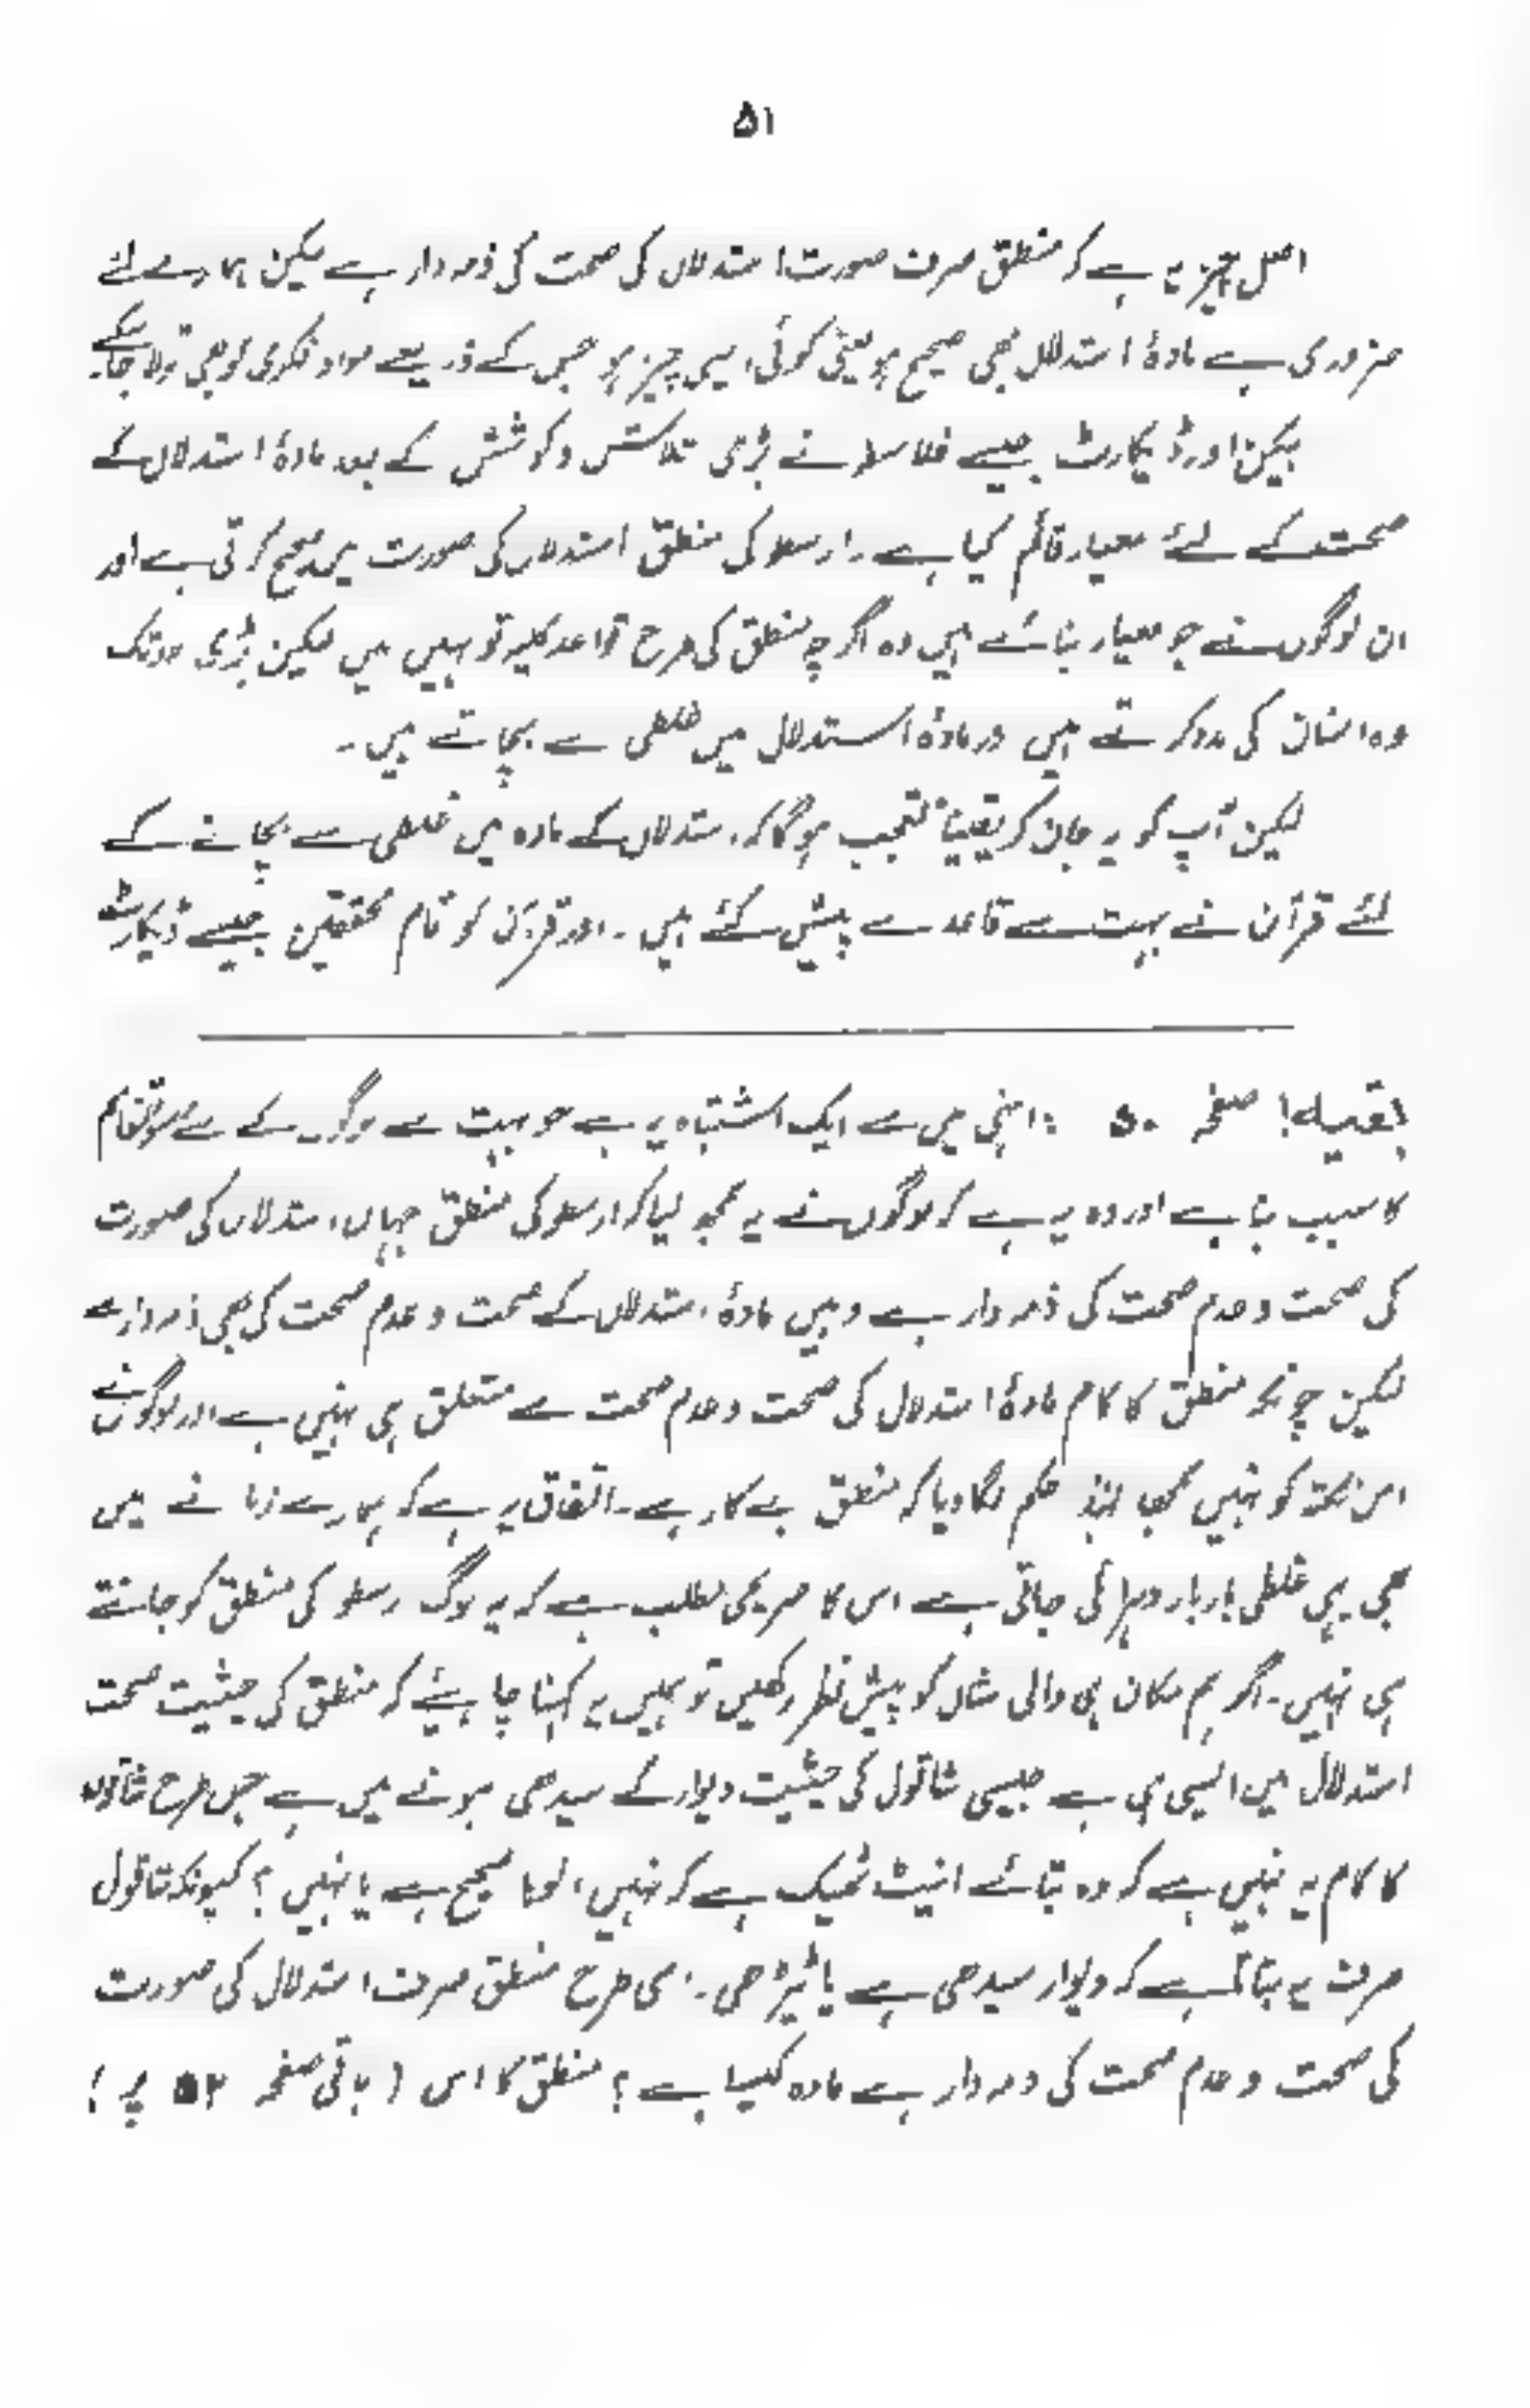 ۵۱
اصل چیز یہ ہے کہ منطق صرف صورت استدلال کی صحت کی ذمہ دار ہے لیکن ہمارے لئے
ضروری ہے مادۂ استدلال بھی صحیح ہو یعنی کوئی ایسی چیز ہو جس کے ذریعے مواد فکری کو بھی تولا جا سکے۔
بیکن اور ڈیکارٹ جیسے فلاسلا نے بڑی تلاش و کوشش کے بعد مادۂ استدلال کے
صحت کے لئے معیار قائم کیا ہے۔ ارسطو کی منطق استدلال کی صورت صحیح کرتی ہے اور
ان لوگوں نے جو معیار بنائے ہیں وہ اگرچہ منطق کی طرح قواعد کلیہ تو نہیں ہیں لیکن بڑی حد تک
وہ انسان کی مدد کرتے ہیں اور مادۂ استدلال میں غلطی سے بچاتے ہیں۔
لیکن آپ کو یہ جان کر یقیناً تعجب ہوگا کہ استدلال کے مادہ میں غلطی سے بچانے کے
لئے قرآن نے بہت سے قاعدے پیش کئے ہیں۔ اور قرآن کو تمام محققین جیسے ڈیکارٹ
بقیہ! صفحہ ۵۰ : انہی میں سے ایک اشتباہ یہ ہے جو بہت سے لوگوں کے لئے
کا سبب بنا ہے اور وہ یہ ہے کہ لوگوں نے یہ سمجھ لیا کہ ارسطو کی منطق جہاں استدلال کی صورت
کی صحت و عدم صحت کی ذمہ دار ہے وہیں مادۂ استدلال کے صحت و عدم صحت کی بھی ذمہ دار ہے
لیکن چونکہ منطق کا کام مادۂ استدلال کی صحت و عدم صحت سے متعلق ہی نہیں ہے اور لوگوں نے
اس نکتہ کو نہیں سمجھا لہٰذا حکم لگا دیا کہ منطق بے کار ہے۔ اتفاق یہ ہے کہ ہمارے زمانے میں
بھی یہی غلطی بار بار دہرائی جاتی ہے اس کا صریحی مطلب ہے کہ یہ لوگ ارسطو کی منطق کو جانتے
ہی نہیں۔ اگر ہم مکان ہی والی مثال کو پیش نظر رکھیں تو ہمیں یہ کہنا چاہیئے کہ منطق کی حیثیت صحت
استدلال میں ایسی ہی ہے جیسی شاقول کی حیثیت دیوار کے سیدھی ہونے میں ہے جس طرح شاقول
کا کام یہ نہیں ہے کہ وہ بتائے اینٹ ٹھیک ہے کہ نہیں، لوہا صحیح ہے یا نہیں؟ کیونکہ شاقول
صرف یہ بتاتا ہے کہ دیوار سیدھی ہے یا ٹیڑھی۔ اسی طرح منطق صرف استدلال کی صورت
کی صحت و عدم صحت کی ذمہ دار ہے مادہ کیسا ہے؟ منطق کا اس (باقی صفحہ ۵۲ پر)